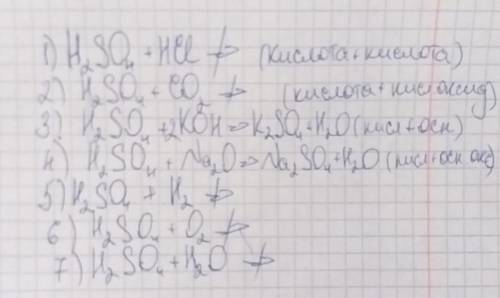 1) H₂SO₄ + HCl ⇏ (кислота+кислота)
2) H₂SO₄ + CO₂ ⇏ (кислота+кисл оксид)
3) H₂SO₄ + 2KOH ⇒ K₂SO₄ + H₂O (кисл+осн)
4) H₂SO₄ + Na₂O ⇒ Na₂SO₄ + H₂O (кисл+осн окс)
5) H₂SO₄ + H₂ ⇏
6) H₂SO₄ + O₂ ⇏
7) H₂SO₄ + H₂O ⇏